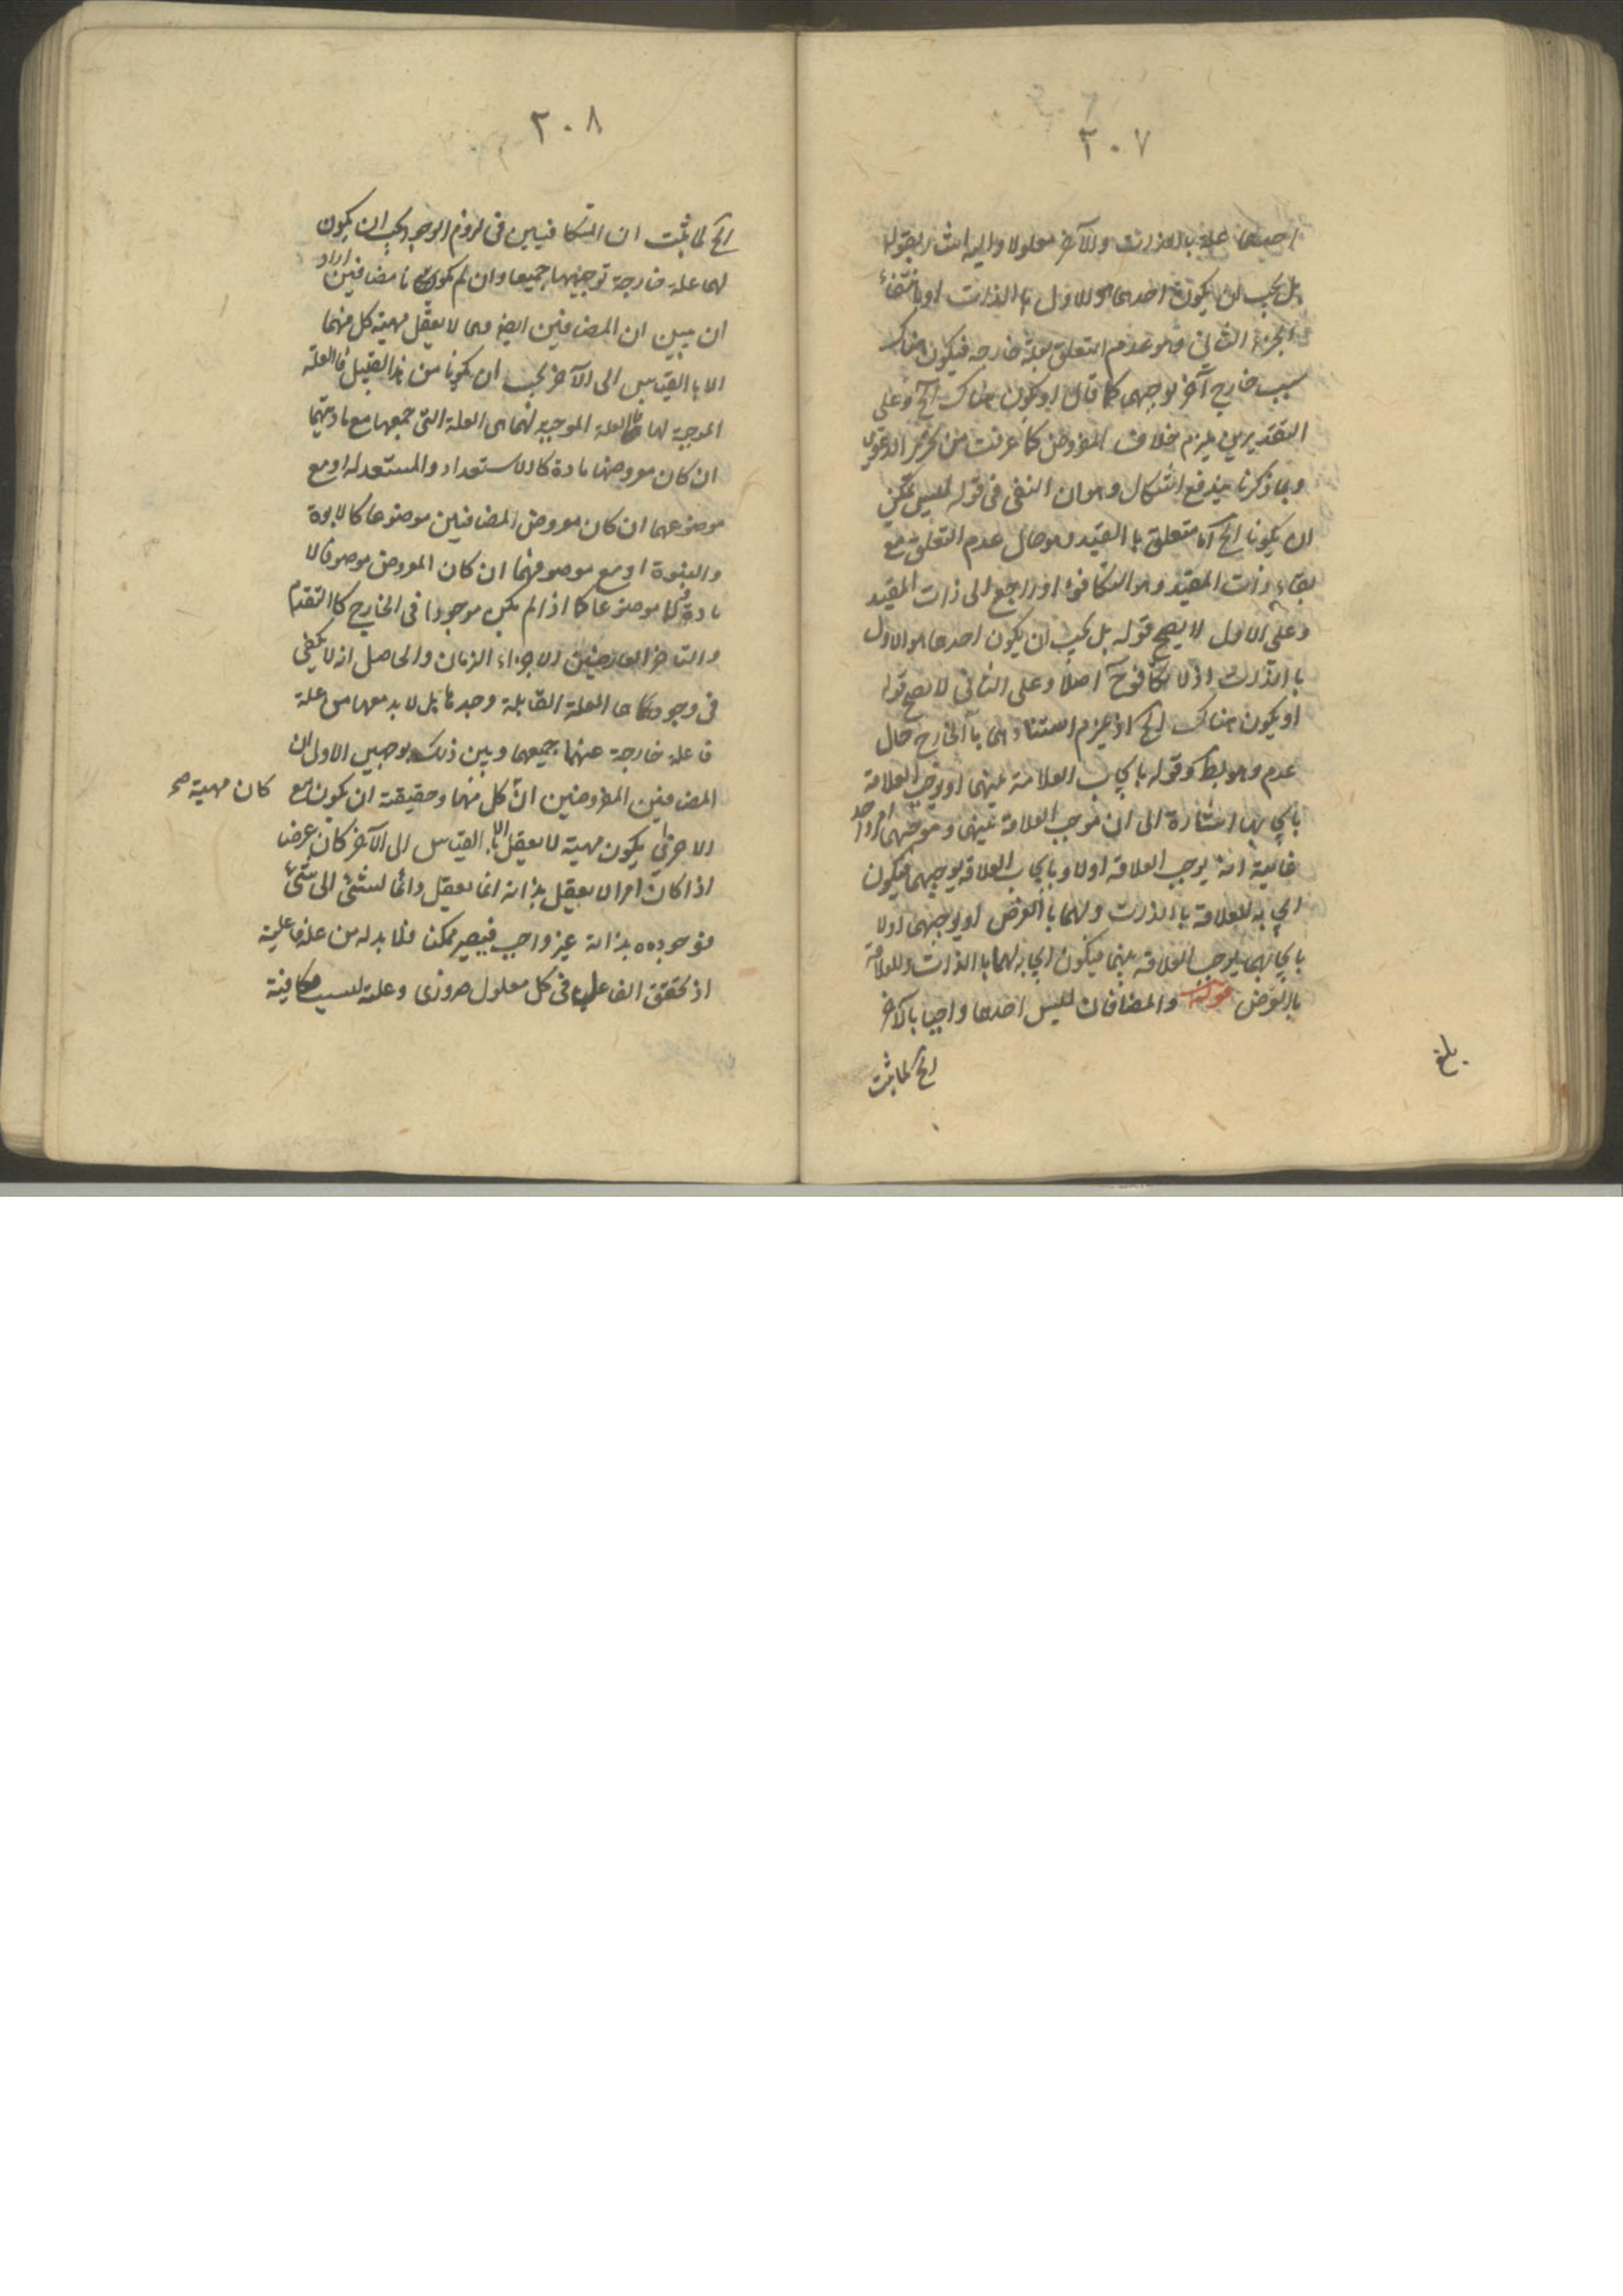 ٢٠٧
احدهما علة بالذات والآخر معلولا واليه اشار بقوله
بل يجب ان يكون احدهما هو الاول بالذات او بانتفاء
الجزء الثاني وهو عدم التعلق بعلة خارجه فيكون هناك
سبب خارج آخر يوجبهما كما قال او يكون هناك الخ وعلى
التقديرين يلزم خلاف المفروض كما عرفت من تحرير الدعوى
وبما ذكرنا يندفع اشكال وهو ان النفى فى قوله ليس يمكن
ان يكونا الخ اما متعلق بالقيد وهو حال عدم التعلق مع
بقاء ذات المقيد وهو التكافؤ او راجع الى ذات المقيد
وعلى الاول لا يصح قوله بل يجب ان يكون احدهما هو الاول
بالذات اذ لا تكافؤ ح اصلا وعلى الثانى لا يصح قوله
او يكون هناك الخ اذ يلزم استنادهما بالخارج حال
عدم وهو بط وقوله بايجاب العلاقة بينهما او يوجب العلاقة
بايجابهما اشارة الى ان موجب العلاقة بينهما وموجبهما امر واحد
غايته انه يوجب العلاقه اولا وبايجاب العلاقه يوجبهما فيكون
ايجابه للعلاقة بالذات ولهما بالعرض او يوجبهما اولا
بايجابهما يوجب العلاقه بينهما فيكون ايجابه لهما بالذات وللعلاقة
بالعرض قوله والمضافان ليس احدهما واجبا بالآخر
الخ لما ثبت
بلغ
٢٠٨
الخ لما ثبت ان المتكافيين فى لزوم الوجوب يجب ان يكون
لهما علة خارجة توجبهما جميعا وان لم يكونا مضافين اراد
ان يبين ان المضافين ايضا وهما لا يعقل مهية كل منهما
الا بالقياس الى الآخر يجب ان يكونا من هذا القبيل فالعلة
الموجبة لهما العلة الموجبة لهما هى العلة التى جمعهما مع مادتيهما
ان كان معروضهما مادة كالاستعداد والمستعد له او مع
موضوعهما ان كان معروض المضافين موضوعا كالابوة
والبنوة او مع موصوفهما ان كان المعروض موصوفا لا
مادة ولا موضوعا كما اذا لم يكن موجودا فى الخارج كالتقدم
والتاخر العارضين لاجزاء الزمان والحاصل انه لا يكفى
فى وجودهما العلة القابلة وحدها بل لا بد معها من علة
فاعلة خارجة عنهما جميعهما وبين ذلك بوجهين الاول ان
المضافين المفروضين ان كل منهما وحقيقته ان يكون مع كان مهية صح
الآخر اى يكون مهية لا يعقل الا بالقياس الى الآخر كان عرضا
اذا كان امرا لا يعقل بذاته انما يعقل دائما لشئ الى شئ
فوجوده بذاته غير واجب فيصير ممكنا فلا بد له من علة فاعلية
اذ تحقق الفاعل فى كل معلول ضرورى وعلته ليست مكافية